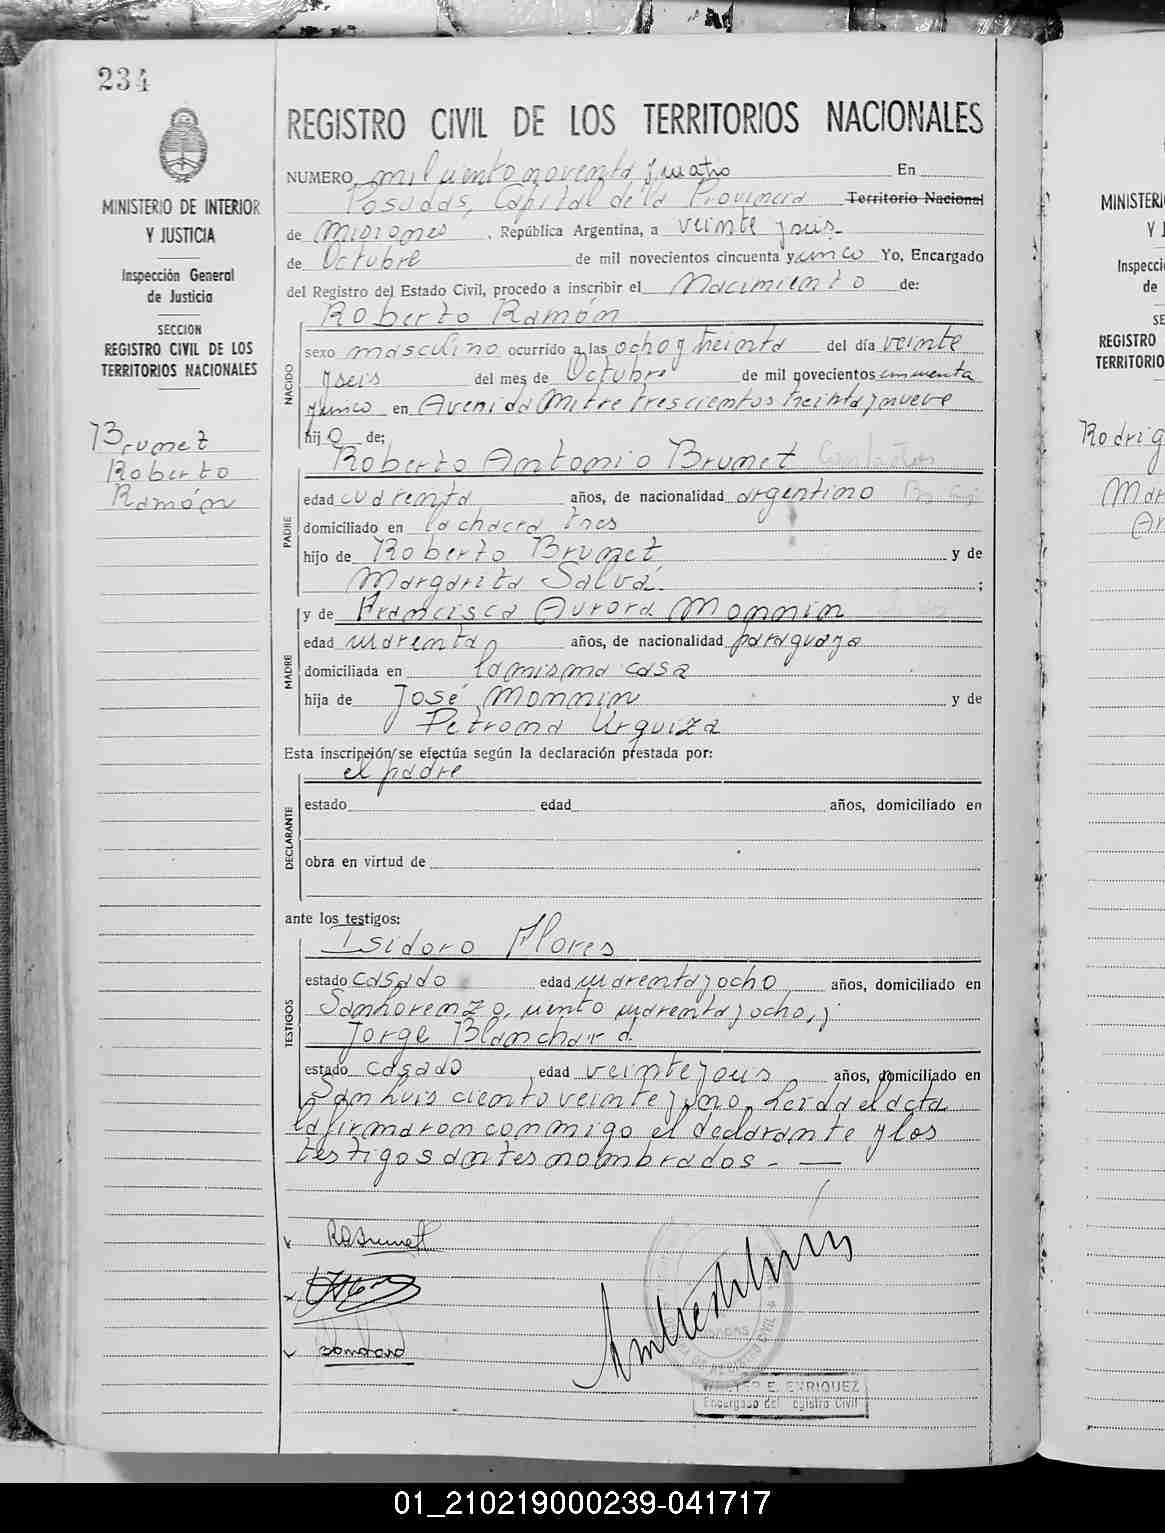 234
MINISTERIO DE INTERIOR
Y JUSTICIA
Inspección General
de Justicia
SECCION
REGISTRO CIVIL DE LOS
TERRITORIOS NACIONALES
Brunet
Roberto
Ramón
REGISTRO CIVIL DE LOS TERRITORIOS NACIONALES
NUMERO mil ciento noventa y cuatro En
Posadas, Capital de la Provincia Territorio Nacional
de Misiones, República Argentina, a veinte y seis
de Octubre de mil novecientos cincuenta y cinco Yo, Encargado
del Registro del Estado Civil, procedo a inscribir el Nacimiento de:
NACIDO
Roberto Ramón
sexo masculino ocurrido a las ocho y treinta del día veinte
y seis del mes de Octubre de mil novecientos cincuenta
y cinco en Avenida Mitre trescientos treinta y nueve
hijo de:
PADRE
Roberto Antonio Brunet
edad cuarenta años, de nacionalidad argentino
domiciliado en la chacra tres
hijo de Roberto Brunet y de
Margarita Salvá ;
MADRE
y de Francisca Aurora Monnin
edad cuarenta años, de nacionalidad paraguaya
domiciliada en la misma casa
hija de José Monnin y de
Petrona Urquiza
Esta inscripción se efectúa según la declaración prestada por:
DECLARANTE
el padre
estado edad años, domiciliado en
obra en virtud de
ante los testigos:
TESTIGOS
Isidoro Flores
estado casado edad cuarenta y ocho años, domiciliado en
San Lorenzo, ciento cuarenta y ocho, y
Jorge Blanchard.
estado casado, edad veinte y seis años, domiciliado en
San Luis ciento veinte y uno. Leida el acta
la firmaron conmigo el declarante y los
testigos antes nombrados.-
RABrunet
WALTER E. ENRIQUEZ
Encargado del Registro Civil
MINISTERI
Y J
Inspecci
de
SE
REGISTRO
TERRITORIO
Rodrig
Mar
01_210219000239-041717